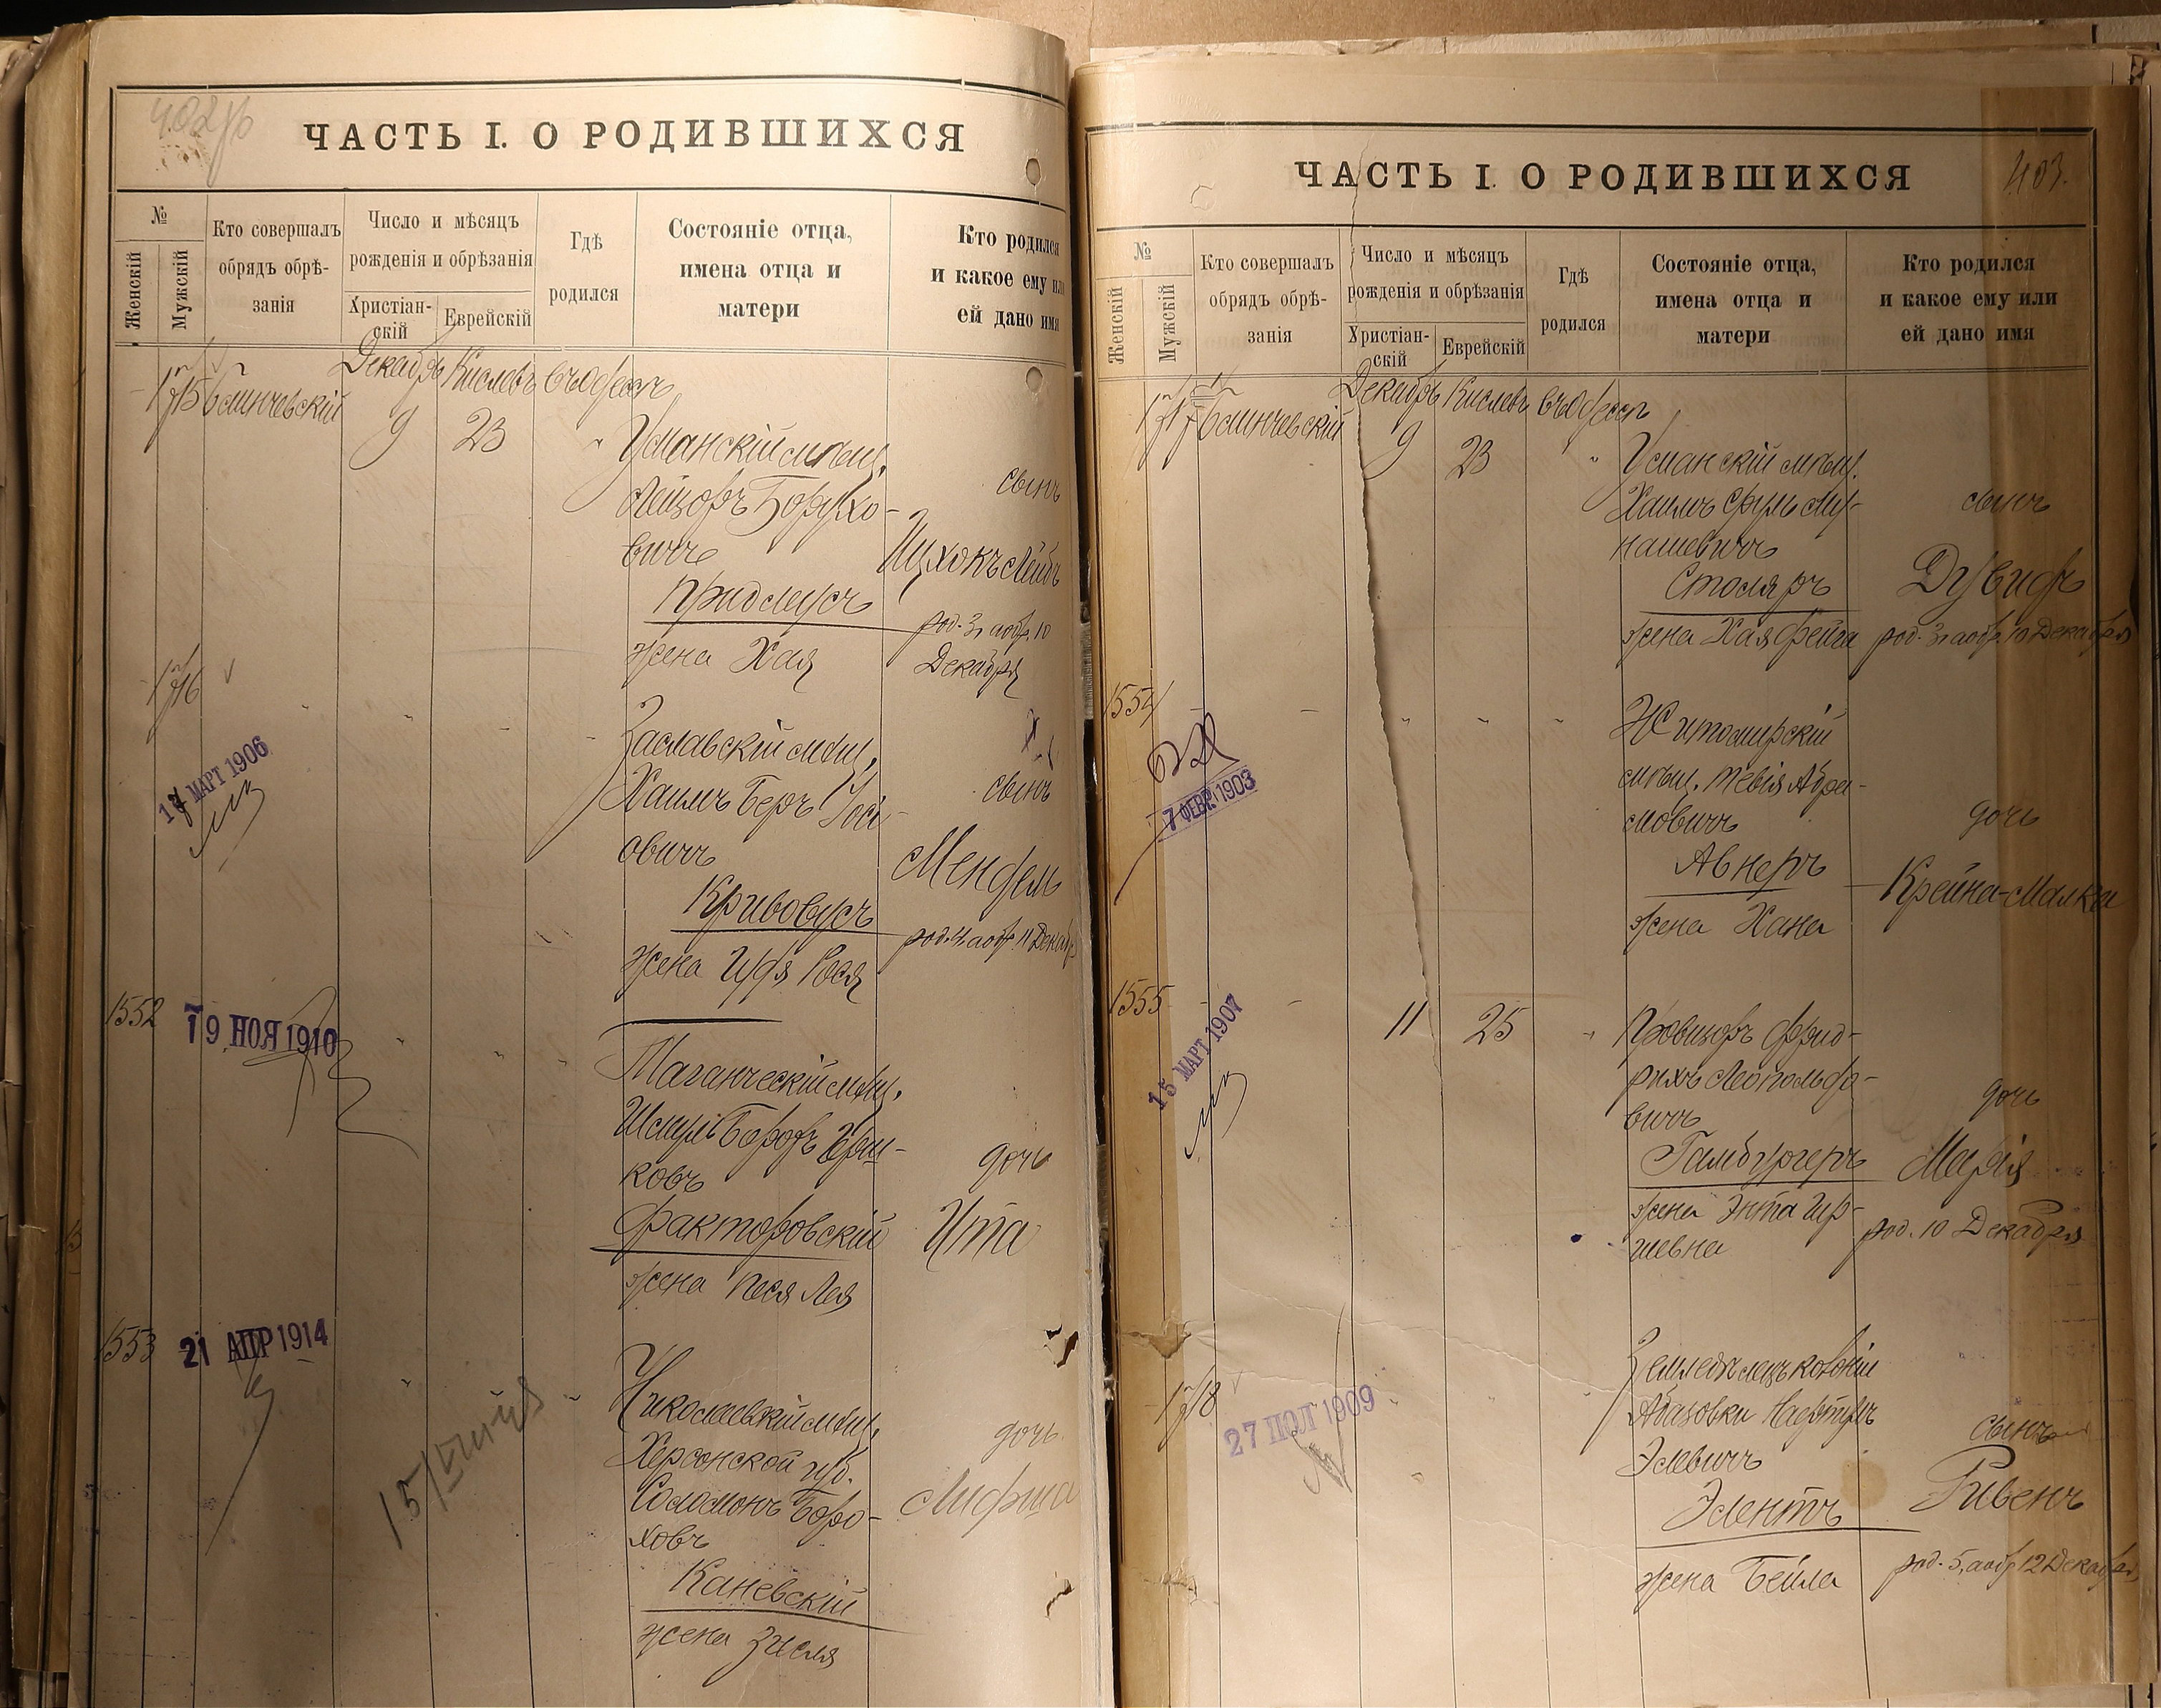 ЧАСТЬ I. О РОДИВШИХСЯ
№
Женскій
Мужскій
Кто совершалъ
обрядъ обрѣ-
занія
Число и мѣсяцъ
рожденія и обрѣзанія
Христіан-
скій
Еврейскій
Гдѣ
родился
Состояніе отца,
имена отца и
матери
Кто родился
и какое ему или
ей дано имя
Декабрь Кислевъ въ Одессѣ
1715
9 23
Уманскій мѣщ.
Лейзоръ Борухо-
вичъ
сынъ
Ицхокъ Лейбъ
жена Хая
род. 3, а обр. 10
Декабря
1716
17 МАРТ 1906
Заславскій мѣщ.
Хаимъ Беръ Іосі-
овичъ
Кривовусъ
жена Идя Рося
сынъ
Мендель
род. 4, а обр. 11 Декабр
1552
19 НОЯ 1910
Таганческій мѣщ.
Шмуль Борохъ Герш-
ковъ
Факторовскій
жена Песя Лея
дочь
Ита
1553
21 АПР 1914
Николаевскій мѣщ.
Херсонской губ.
Соломонъ Боро-
ховъ
Каневскій
жена Зисля
дочь
ЧАСТЬ I. О РОДИВШИХСЯ
403.
№
Женскій
Мужскій
Кто совершалъ
обрядъ обрѣ-
занія
Число и мѣсяцъ
рожденія и обрѣзанія
Христіан-
скій
Еврейскій
Гдѣ
родился
Состояніе отца,
имена отца и
матери
Кто родился
и какое ему или
ей дано имя
Декабрь Кислевъ въ Одессѣ
1717
9 23
Уманскій мѣщ.
Хаимъ Сруль Му-
нашевичъ
Столяръ
жена Хая Фейга
сынъ
Дувидъ
род. 3, а обр. 10 Декабря
1554
7 ФЕВР. 1903
Житомирскій
мѣщ. Тевія Абра-
мовичъ
Авнеръ
жена Хана
дочь
Крейна-Малка
1555
15 МАРТ 1907
11 25
Провизоръ Фрид-
рихъ Леопольдо-
вичъ
Гамбургеръ
жена Энта Гир-
шевна
дочь
Марія
род. 10 Декабря
1718
27 ІЮЛ 1909
Земледѣлецъ колоніи
Абазовки Нафтулъ
Элевичъ
Элентъ
жена Бейла
сынъ
Рувенъ
род. 5, а обр 12 Декабря